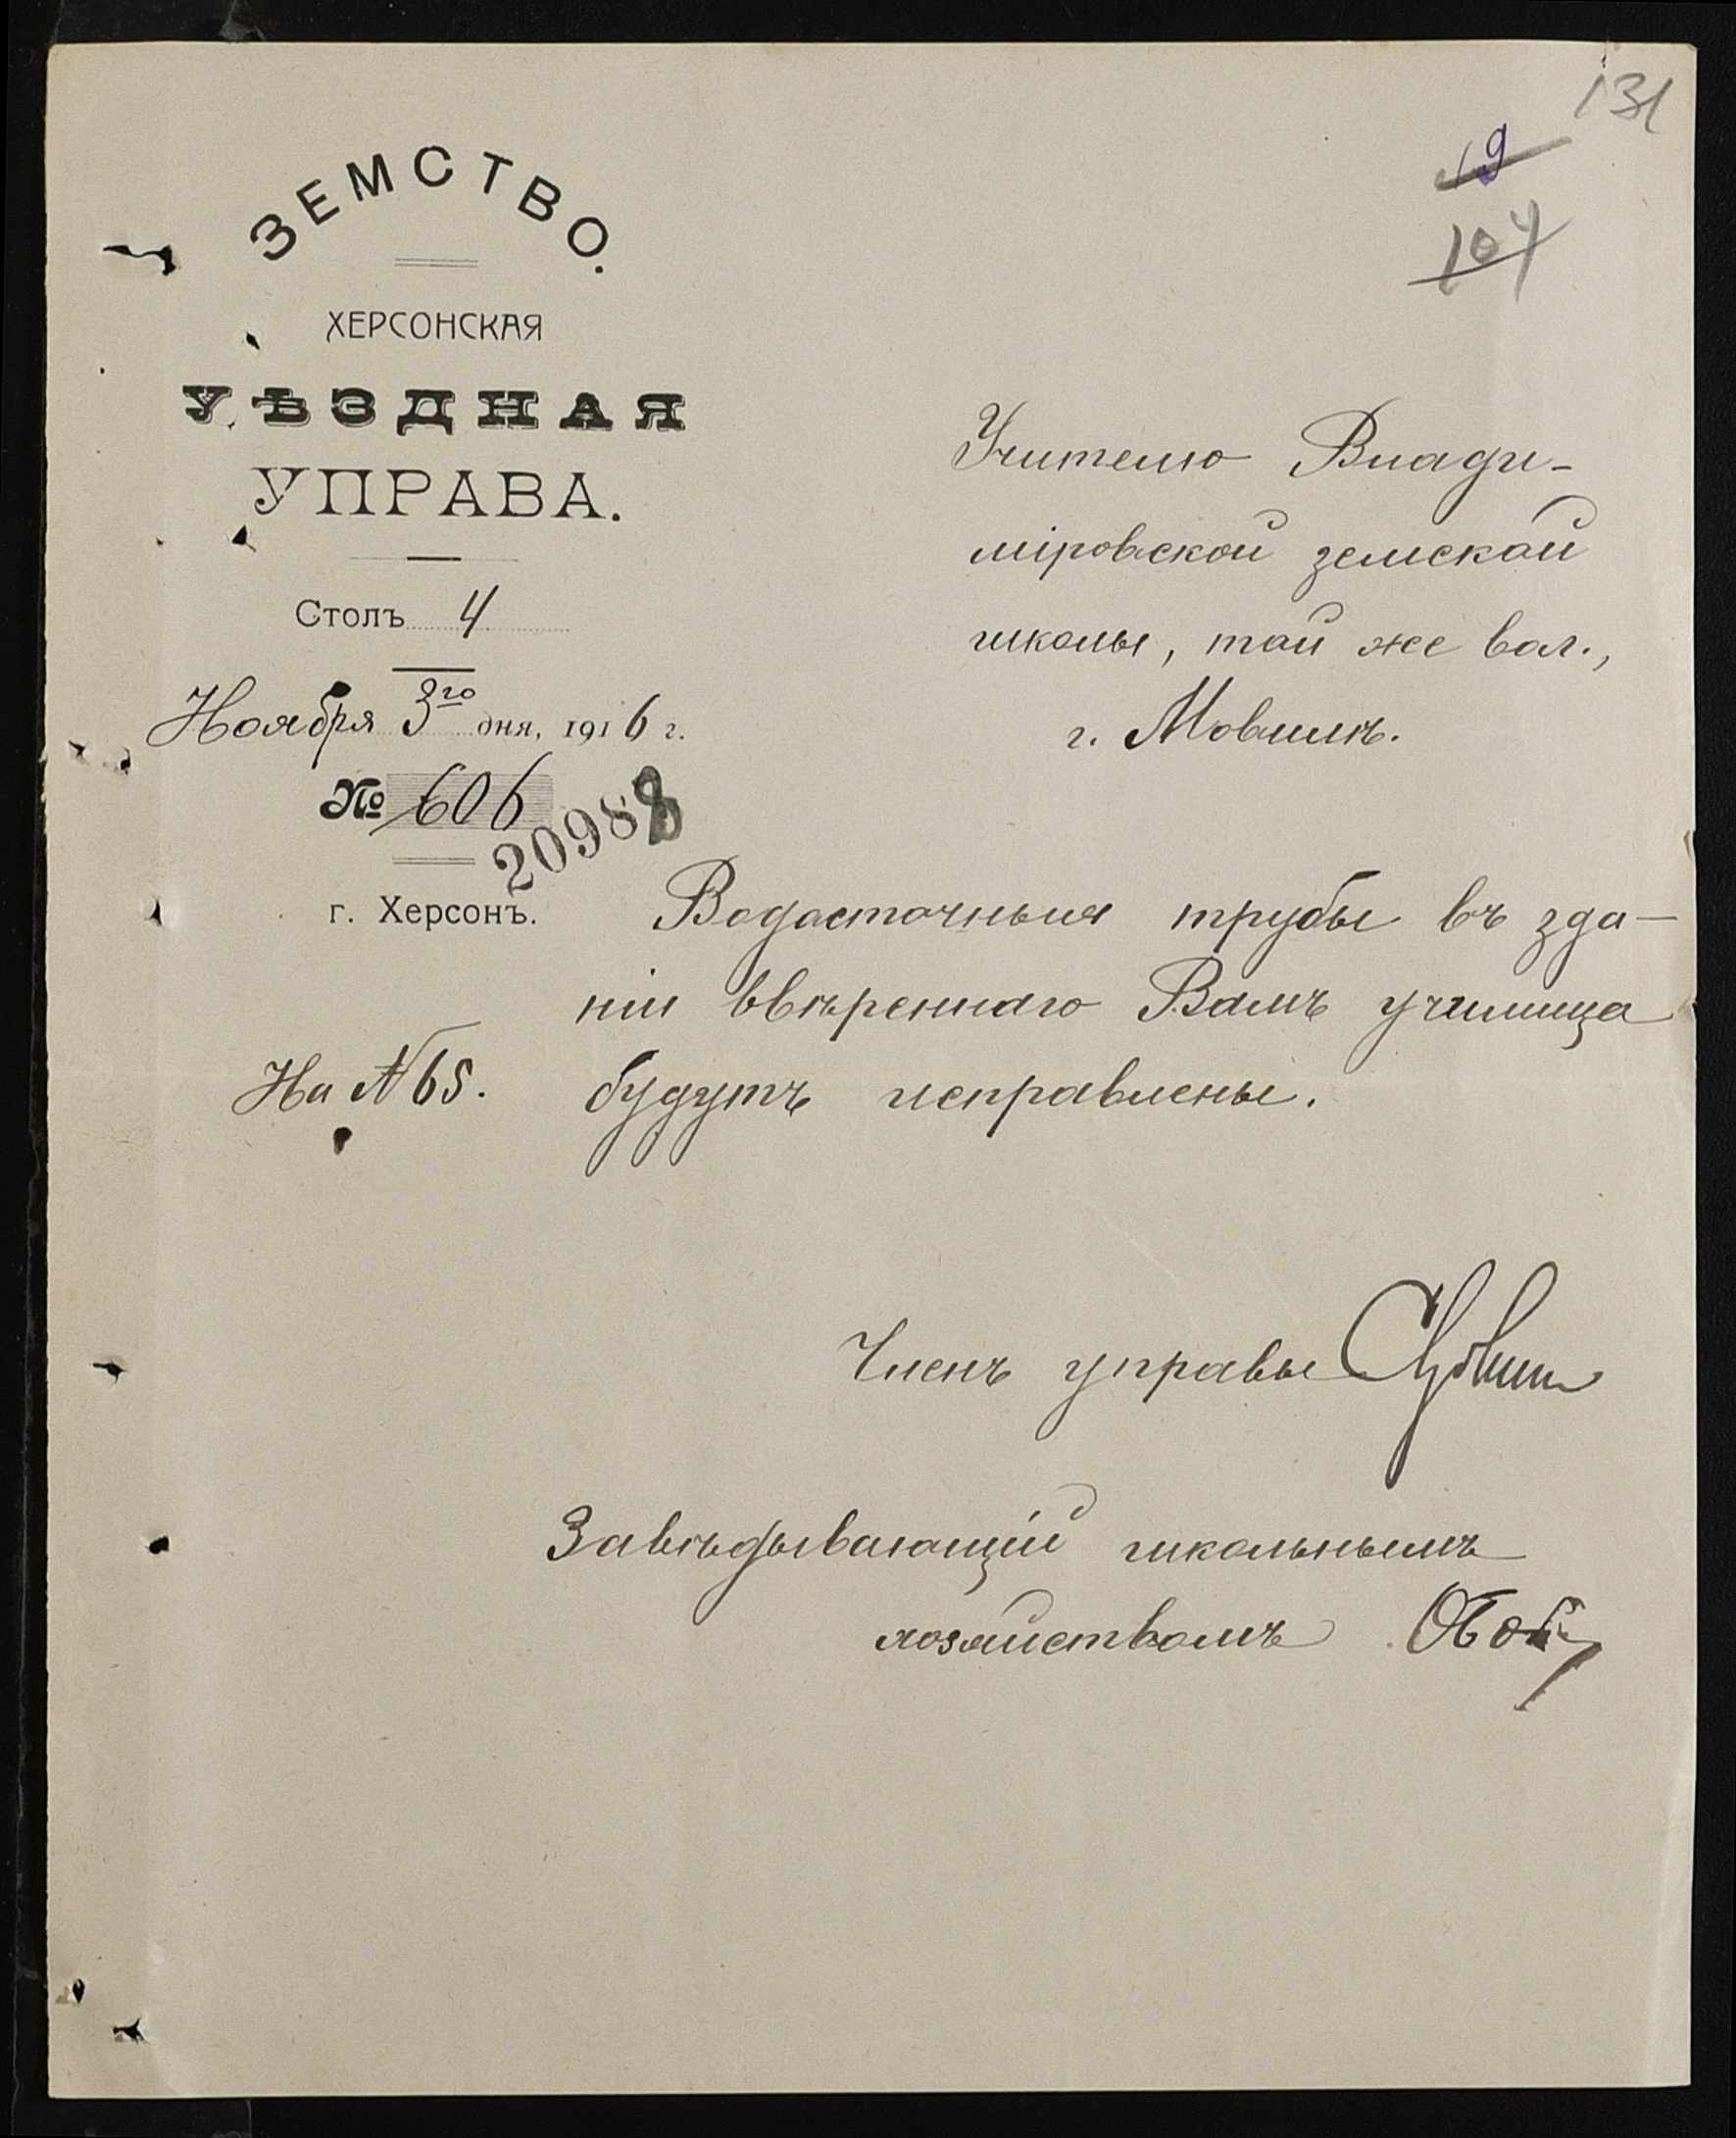 131
19
104
ЗЕМСТВО.
ХЕРСОНСКАЯ
УѢЗДНАЯ
УПРАВА.
Столъ 4
Ноября 3го дня, 1916 г.
№ 606
20988
г. Херсонъ.
На № 65.
Учителю Влади-
міровской земской
школы, той же вол.,
г.
Водосточныя трубы въ зда-
ніи ввѣреннаго Вамъ училища
будутъ исправлены.
Членъ управы
Завѣдывающій школьнымъ
хозяйствомъ